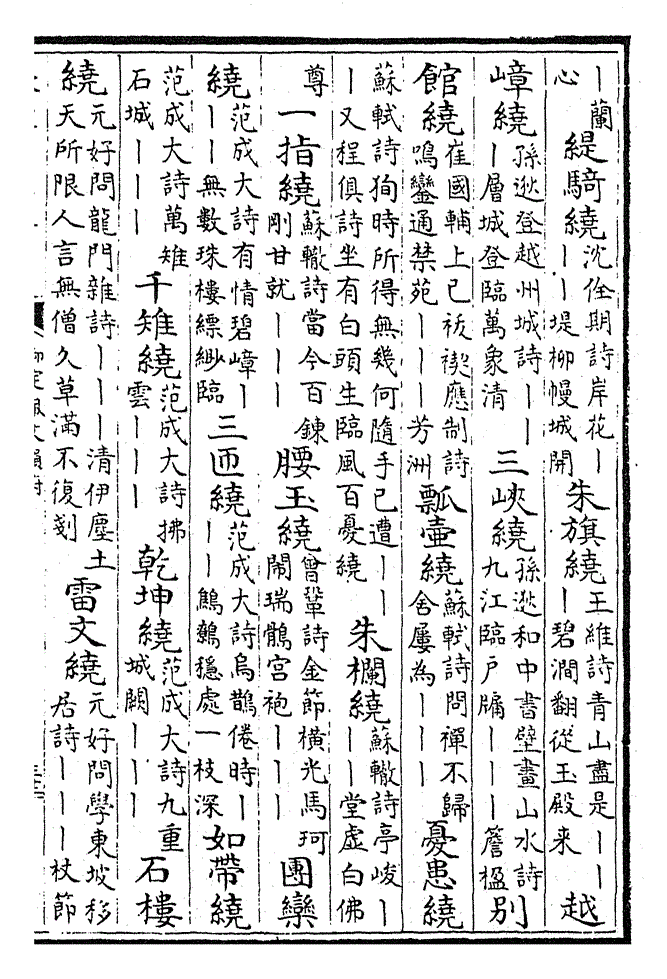 ｜蘭心緹騎繞沈佺期詩岸花｜｜｜堤柳幔城開朱旗繞王維詩青山盡是｜｜｜碧澗翻從玉殿来越
嶂繞孫逖登越州城詩｜｜｜層城登臨萬象清三峽繞孫逖和中書壁畫山水詩九江臨户牖｜｜｜簷楹別
館繞崔國輔上巳祓禊應制詩鳴鑾通禁苑｜｜｜芳洲瓢壺繞蘇軾詩問禪不歸舍屢為｜｜｜憂患繞
蘇軾詩狥時所得無幾何隨手已遭｜｜｜又程俱詩坐有白頭生臨風百憂繞朱欄繞蘇轍詩亭峻｜｜｜堂虛白佛
尊一指繞蘇轍詩當今百鍊剛甘就｜｜｜腰玉繞曾鞏詩金節橫光馬珂鬧瑞鶻宮袍｜｜｜團欒
繞范成大詩有情碧嶂｜｜｜無數珠樓縹緲臨三匝繞范成大詩烏鵲倦時｜｜｜鷦鷯穩處一枝深如帶繞
范成大詩萬雉石城｜｜｜千雉繞范成大詩拂雲｜｜｜乾坤繞范成大詩九重城闕｜｜｜石樓
繞元好問龍門雜詩｜｜｜清伊塵土天所限人言無僧久草滿不復剗雷文繞元好問學東坡移居詩｜｜｜杖節